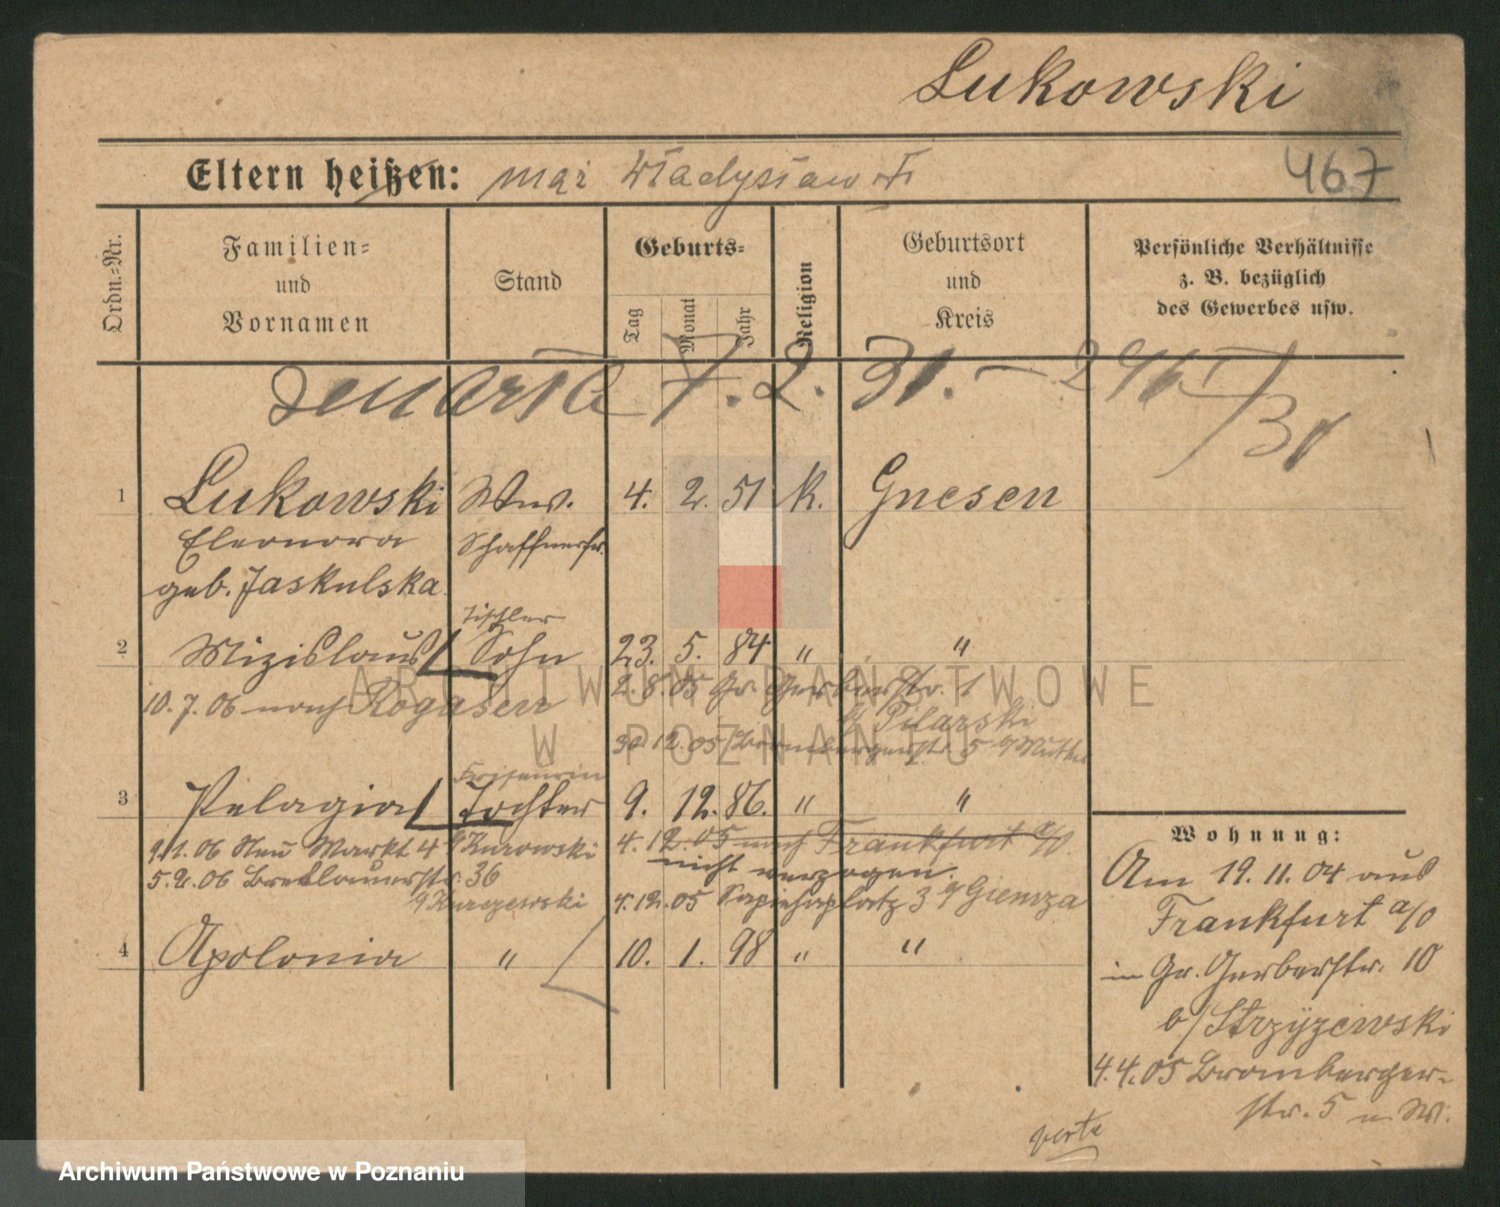 Lukowski
Eltern heißen: mąż Władysław
467
Ordn.-Nr.
Familien-
und
Vornamen
Stand
Geburts-
Tag
Monat
Jahr
Religion
Geburtsort
und
Kreis
Persönliche Verhältnisse
z. B. bezüglich
des Gewerbes usw.
zmarła 7.2.31. — 296
/31
1 Lukowski Ww. 4. 2. 51 K. Gnesen
Eleonora Schaffnerfr.
geb. Jaskulska
Tischler
2 Mizislaus Sohn 23. 5. 84 " "
10.7.06 nach Rogasen 2.8.05 Gr. Gerberstr. 1
b/ Pilarski
30.12.05 Brombergerstr. 5 Mutter
Friseurin
3 Pelagia Tochter 9. 12. 86. " "
9.1.06 Neu Markt 4 Kurowski 4.12.05 nach Frankfurt a/O
nicht verzogen.
5.2.06 Breslauerstr. 36
Kurczewski 4.12.05 Sapiehaplatz 3 Giemza
4 Apolonia " 10. 1. 98 " "
Wohnung:
Am 19.11.04 aus
Frankfurt a/O
in Gr. Gerberstr. 10
b/ Strzyżewski
4.4.05 Bromberger-
str. 5
verte
ARCHIWUM PAŃSTWOWE
W POZNANIU
Archiwum Państwowe w Poznaniu